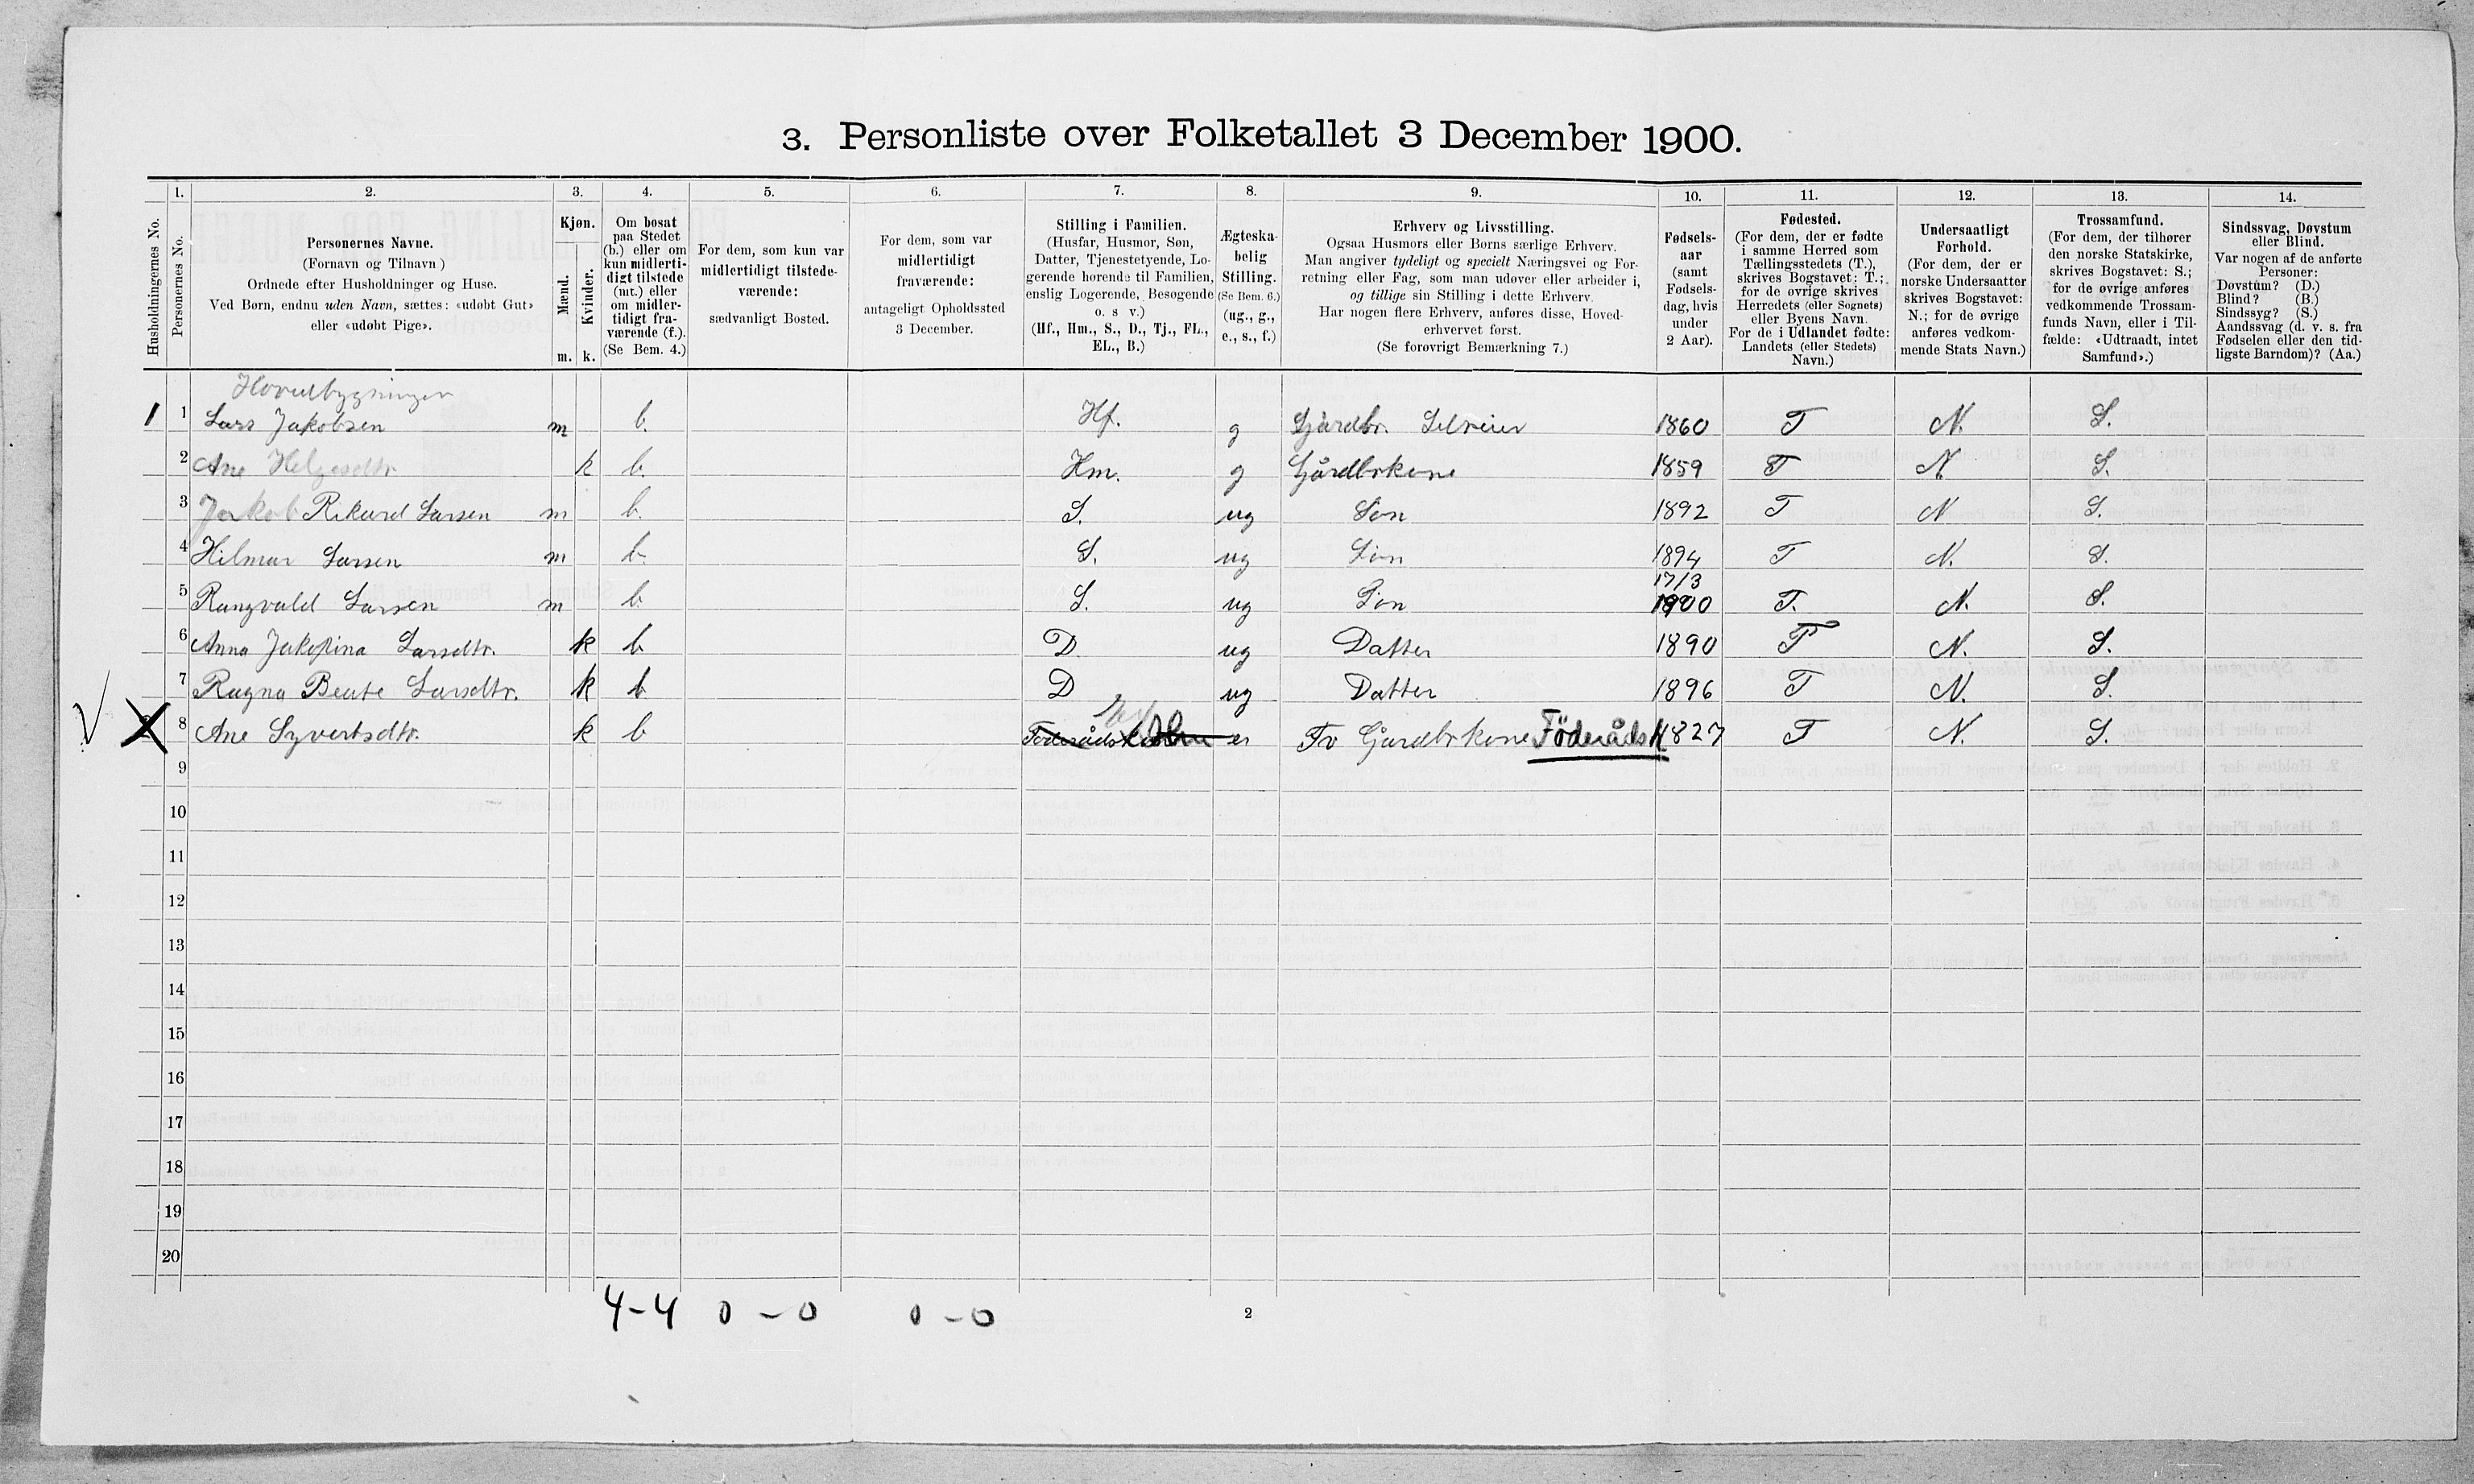 3. Personliste over Folketallet 3 December 1900.
1. 2. 3. 4. 5. 6. 7. 8. 9. 10. 11. 12. 13. 14.
Husholdningernes No.
Personernes No.
Personernes Navne.
(Fornavn og Tilnavn )
Ordnede efter Husholdninger og Huse.
Ved Børn, endnu uden Navn, sættes: «udøbt Gut»
eller «udøbt Pige».
Kjøn.
Mænd.
Kvinder.
m. k.
Om bosat
paa Stedet
(b.) eller om
kun midlerti-
digt tilstede
(mt.) eller
om midler-
tidigt fra-
værende (f.).
(Se Bem. 4.)
For dem, som kun var
midlertidigt tilstede-
værende:
sædvanligt Bosted.
For dem, som var
midlertidigt
fraværende:
antageligt Opholdssted
3 December.
Stilling i Familien.
(Husfar, Husmor, Søn,
Datter, Tjenestetyende, Lo-
gerende hørende til Familien,
enslig Logerende, Besøgende
o. s v.)
(Hf., Hm., S., D., Tj., FL.,
EL., B.)
Ægteska-
belig
Stilling.
(Se Bem. 6.)
(ug., g.,
e., s., f.)
Erhverv og Livsstilling.
Ogsaa Husmors eller Børns særlige Erhverv.
Man angiver tydeligt og specielt Næringsvei og For-
retning eller Fag, som man udøver eller arbeider i,
og tillige sin Stilling i dette Erhverv.
Har nogen flere Erhverv, anføres disse, Hoved-
erhvervet først.
(Se forøvrigt Bemærkning 7.)
Fødsels-
aar
(samt
Fødsels-
dag, hvis
under
2 Aar).
Fødested.
(For dem, der er fødte
i samme Herred som
Tællingsstedets (T.),
skrives Bogstavet: T.;
for de øvrige skrives
Herredets (eller Sognets)
eller Byens Navn.
For de i Udlandet fødte:
Landets (eller Stedets)
Navn.)
Undersaatligt
Forhold.
(For dem, der er
norske Undersaatter
skrives Bogstavet:
N.; for de øvrige
anføres vedkom-
mende Stats Navn.)
Trossamfund.
(For dem, der tilhører
den norske Statskirke,
skrives Bogstavet: S.;
for de øvrige anføres
vedkommende Trossam-
funds Navn, eller i Til-
fælde: «Udtraadt, intet
Samfund».)
Sindssvag, Døvstum
eller Blind.
Var nogen af de anførte
Personer:
Døvstum? (D.)
Blind? (B.)
Sindssyg? (S.)
Aandssvag (d. v. s. fra
Fødselen eller den tid-
ligste Barndom)? (Aa.)
Hovedbygningen
1 1 Lars Jakobsen m b. Hf. g Gårdbr. Selveier 1860 T N. S.
2 Ane Helgesdtr k b. Hm. g Gårdbrkone 1859 T N S.
3 Jakob Rikard Larsen m b. S. ug Søn 1892 T N S.
4 Hilmar Larsen m b. S. ug Søn 1894 T N. S.
17/3
5 Rangvald Larsen m b. S. ug Søn 1900 T. N. S.
6 Anna Jakobina Larsdtr. k b D. ug Datter 1890 T N. S.
7 Ragna Beate Larsdtr. k b D ug Datter 1896 T N. S.
8 Ane Syvertsdtr. k b e Fv Gårdbrkone Föderåds K 1827 T N. S.
9
10
11
12
13
14
15
16
17
18
19
20
4-4 0-0 0-0 2